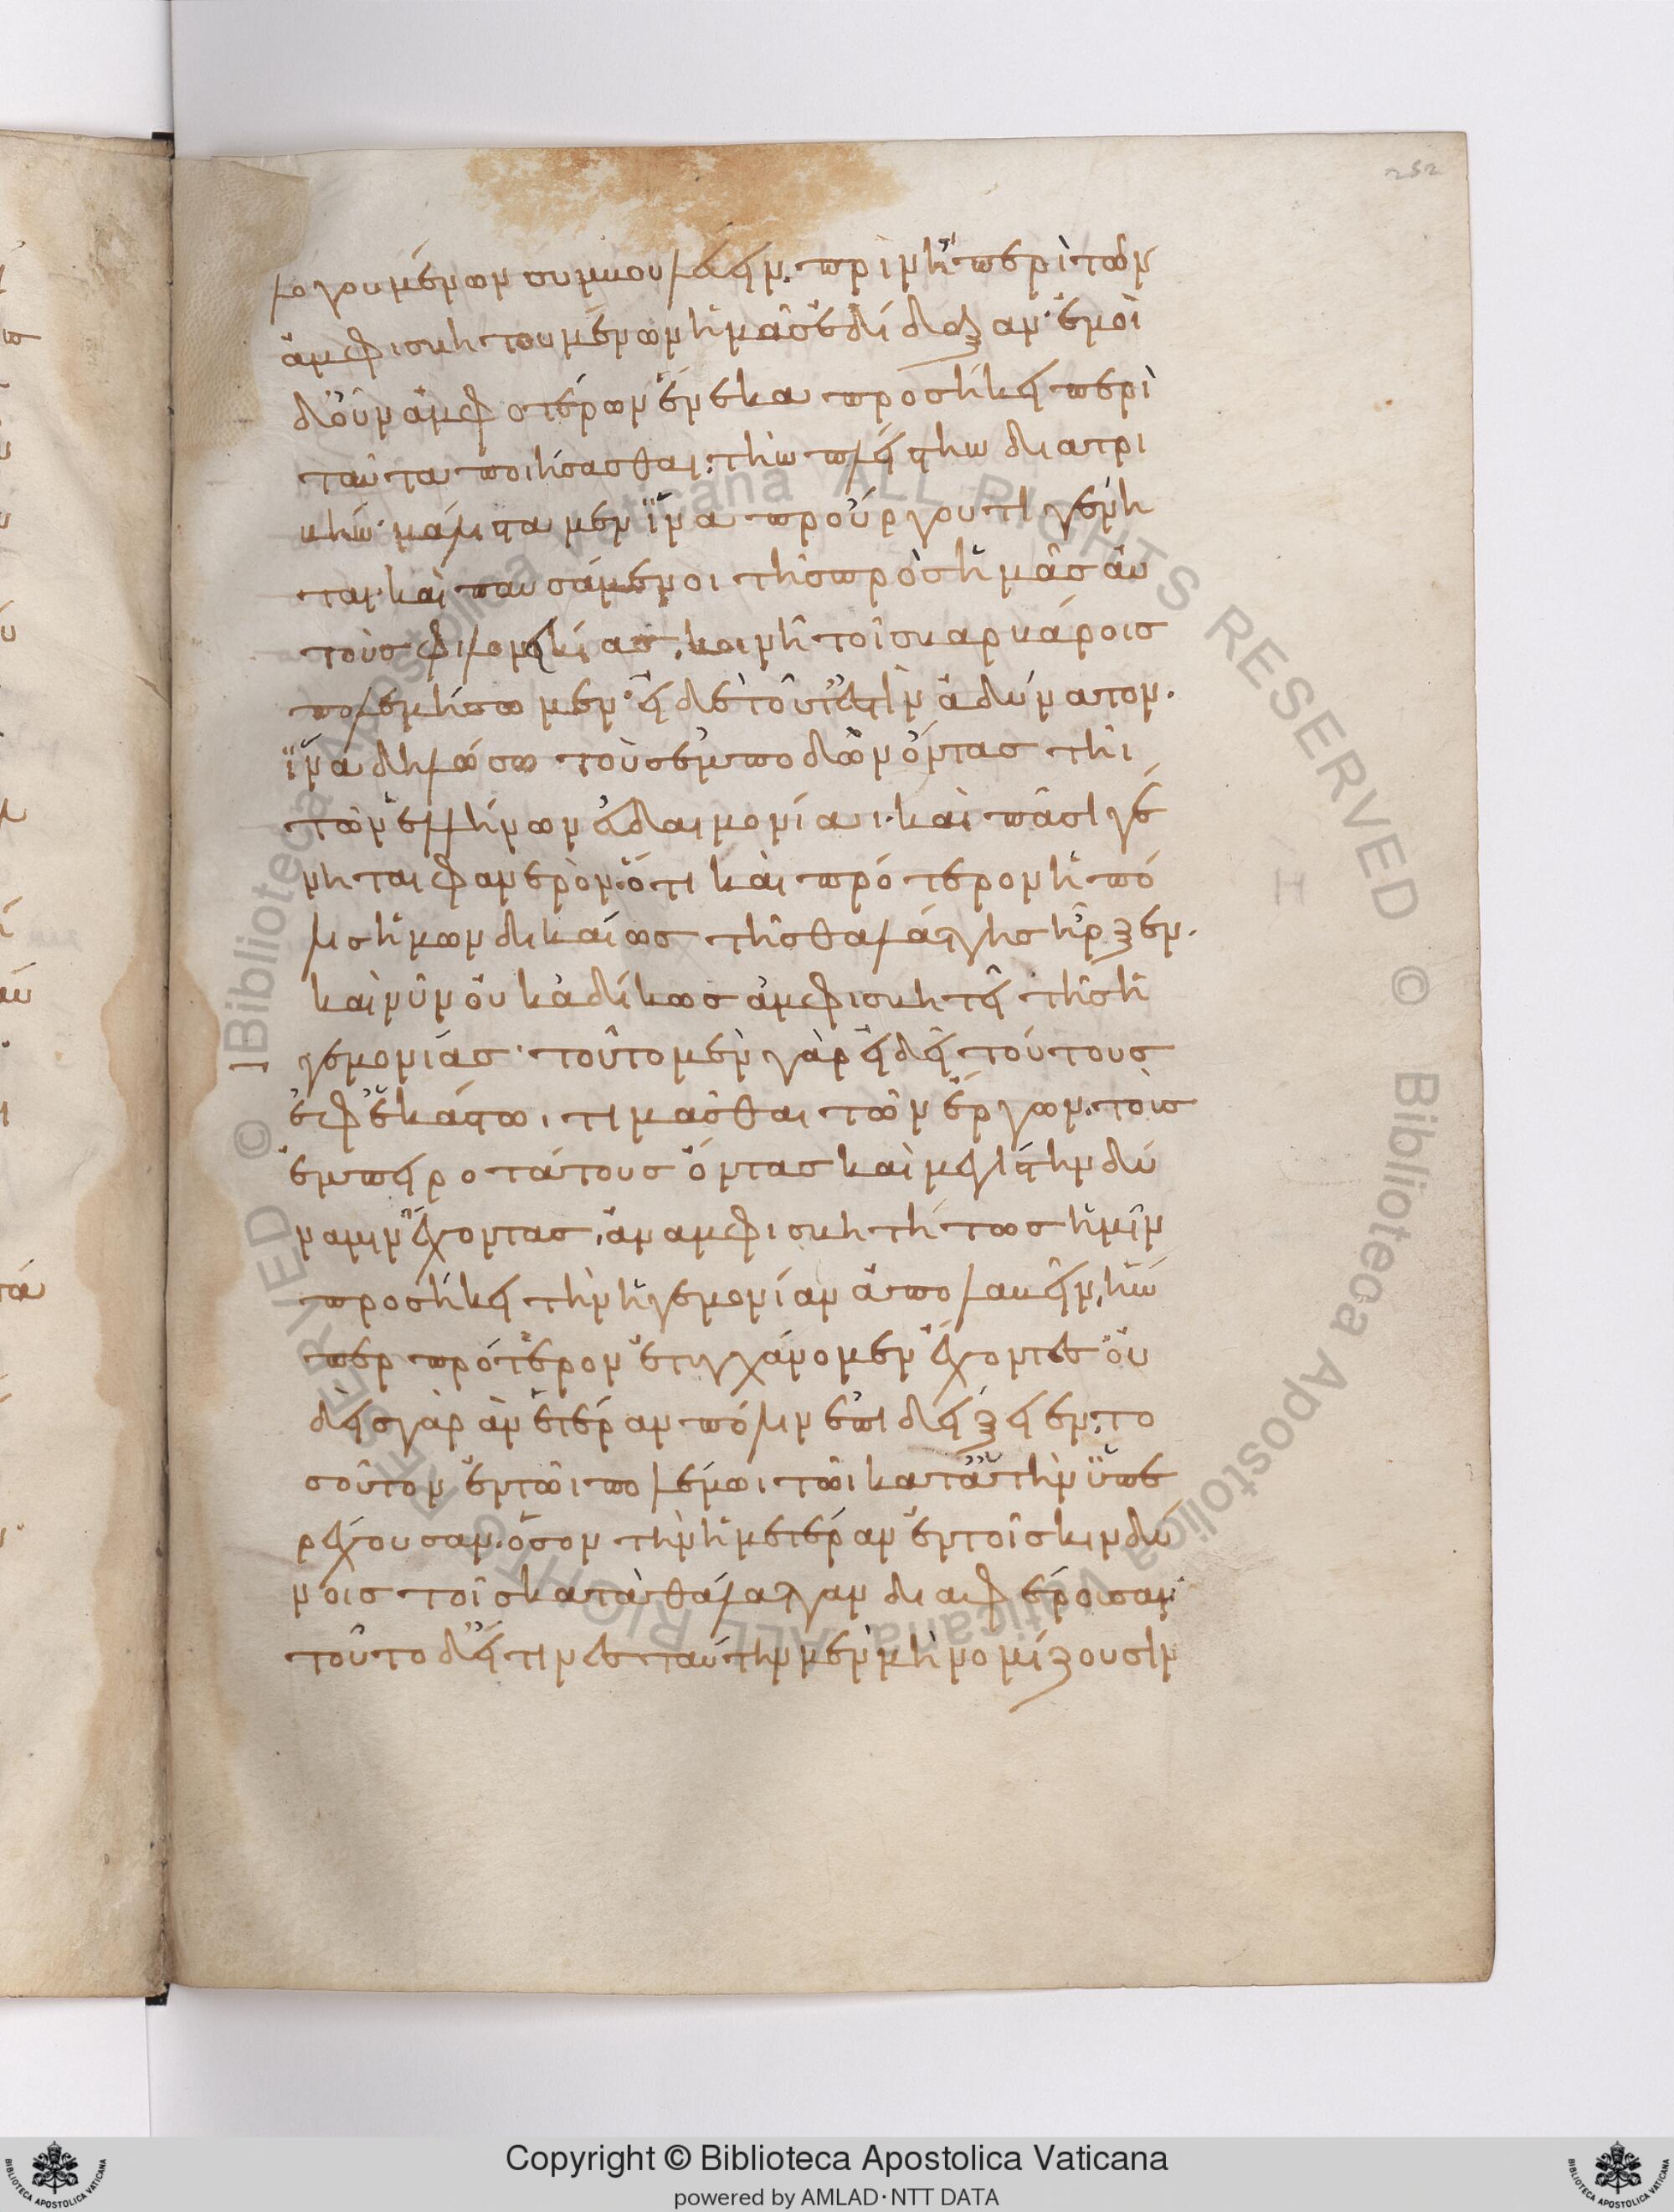 252
λογουμένων συμβουλεύειν. πρὶν ἢ περὶ τῶν
ἀμφισβητουμένων ἡμᾶς ἐδίδαξαν· ἐμοὶ
δ' οὖν ἀμφοτέρων ἕνεκα προσήκει περὶ
ταῦτα ποιήσασθαι τὴν πλείστην διατρι
βήν· μάλιστα μὲν ἵνα προὔργου τι γένη
ται· καὶ παυσάμενοι τῆς πρὸς ἡμᾶς αὐ
τοὺς φιλονεικίας, κοινῆ τοῖς βαρβάροις
πολεμήσωμεν· εἰ δὲ τοῦτ' ἐστὶν ἀδύνατον.
ἵνα δηλώσω τοὺς ἐμποδὼν ὄντας τῆι
τῶν ἑλλήνων εὐδαιμονίαι· καὶ πᾶσι γέ
νηται φανερὸν· ὅτι καὶ πρότερον ἡ πό
λις ἡμῶν δικαίως τῆς θαλάττης ἦρξεν.
καὶ νῦν οὐκ ἀδίκως ἀμφισβητεῖ τῆς ἡ
γεμονίας· τοῦτο μὲν γὰρ εἰ δεῖ τούτους
ἐφ' ἑκάστω, τιμᾶσθαι τῶν ἔργων. τοὺς
ἐμπειροτάτους ὄντας καὶ μεγίστην δύ
ναμιν ἔχοντας, ἀναμφισβητήτως ἡμῖν
προσήκει τὴν ἡγεμονίαν ἀπολαβεῖν, ἥν
περ πρότερον ἐτυγχάνομεν ἔχοντες· οὐ
δεὶς γὰρ ἂν ἑτέραν πόλιν ἐπιδείξειεν· το
σοῦτον ἐν τῶι πολέμωι τῶι κατὰ γῆν ὑπε
ρέχουσαν. ὅσον τὴν ἡμετέραν ἐν τοῖς κινδύ
νοις τοῖς κατὰ θάλατταν διαφέρουσαν·
τοῦτο δ' εἴ τινες ταύτην μὲν μὴ νομίζουσιν
Copyright © Biblioteca Apostolica Vaticana
powered by AMLAD·NTT DATA